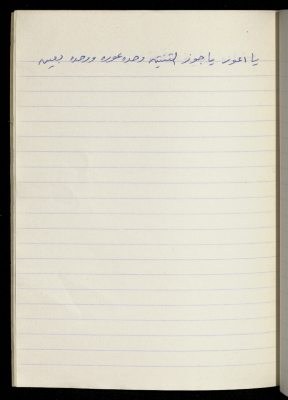 يا اعور يا جوز التنتين وحده عوره ووحده بعين